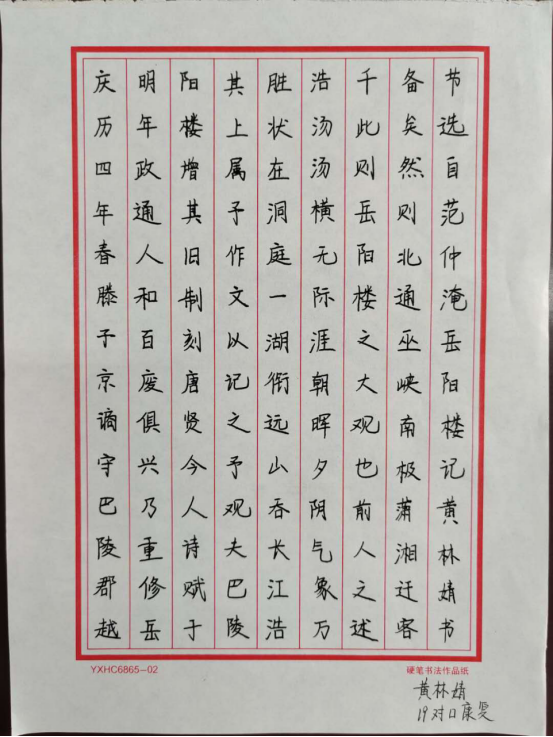 庆历四年春滕子京谪守巴陵郡越
明年政通人和百废俱兴乃重修岳
阳楼增其旧制刻唐贤今人诗赋于
其上属予作文以记之予观夫巴陵
胜状在洞庭一湖衔远山吞长江浩
浩汤汤横无际涯朝晖夕阴气象万
千此则岳阳楼之大观也前人之述
备矣然则北通巫峡南极潇湘迁客
节选自范仲淹岳阳楼记黄林婧书
YXHC6865-02
硬笔书法作品纸
黄林婧
19对口康复